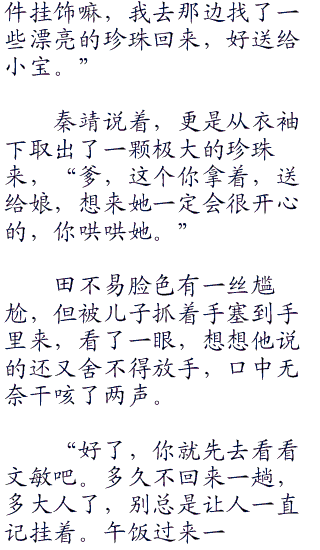 件挂饰嘛，我去那边找了一
些漂亮的珍珠回来，好送给
小宝。”
秦靖说着，更是从衣袖
下取出了一颗极大的珍珠
来，“爹，这个你拿着，送
给娘，想来她一定会很开心
的，你哄哄她。”
田不易脸色有一丝尴
尬，但被儿子抓着手塞到手
里来，看了一眼，想想他说
的还又舍不得放手，口中无
奈干咳了两声。
“好了，你就先去看看
文敏吧。多久不回来一趟，
多大人了，别总是让人一直
记挂着。午饭过来一